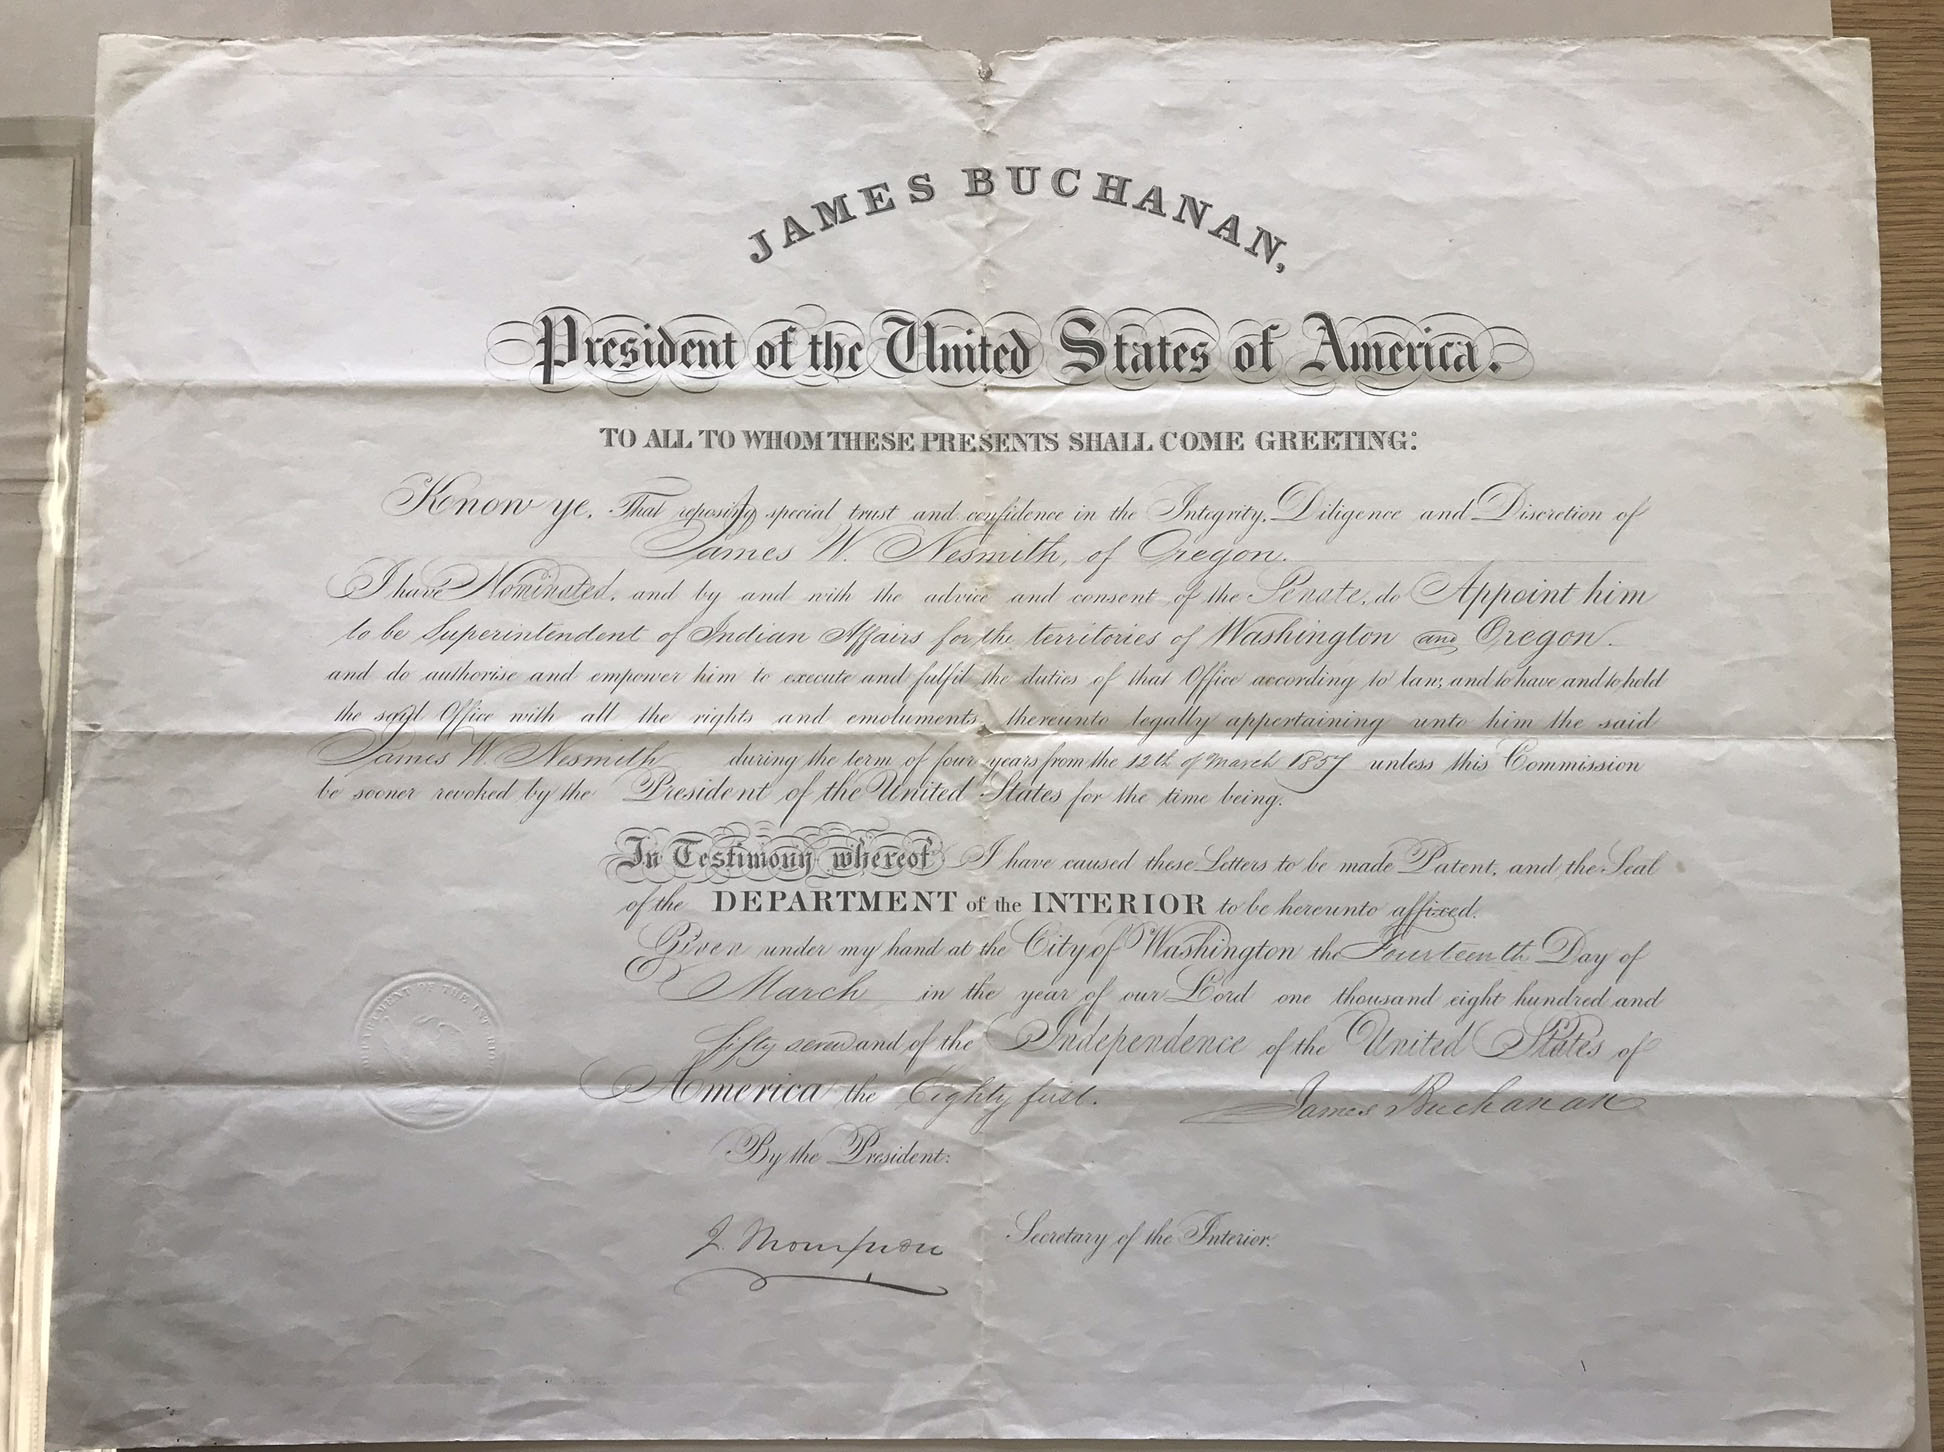 JAMES BUCHANAN,
President of the United States of America.
TO ALL TO WHOM THESE PRESENTS SHALL COME GREETING:
Know ye, That reposing special trust and confidence in the Integrity, Diligence and Discretion of
James W. Nesmith, of Oregon.
I have Nominated, and by and with the advice and consent of the Senate, do Appoint him
to be Superintendent of Indian Affairs for the territories of Washington and Oregon.
and do authorise and empower him to execute and fulfil the duties of that Office according to law; and to have and to hold
the said Office with all the rights and emoluments, thereunto legally appertaining unto him the said
James W. Nesmith during the term of four years from the 12th of March 1857 unless this Commission
be sooner revoked by the President of the United States for the time being.
In Testimony whereof I have caused these Letters to be made Patent, and the Seal
of the DEPARTMENT of the INTERIOR to be hereunto affixed.
Given under my hand at the City of Washington the Fourteenth Day of
March in the year of our Lord one thousand eight hundred and
fifty seven and of the Independence of the United States of
America the Eighty first.
James Buchanan
By the President:
J. Thompson
Secretary of the Interior.